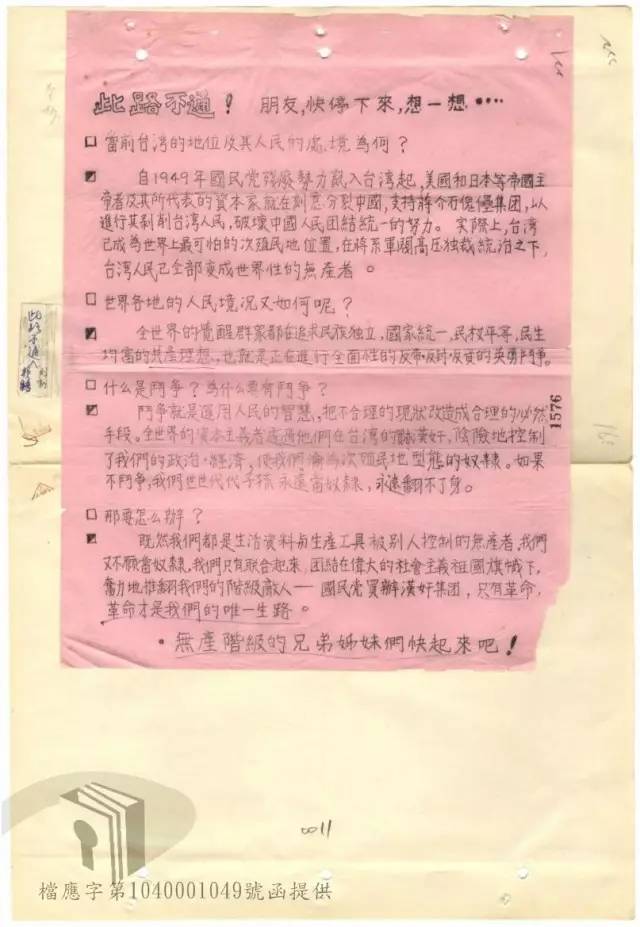 此路不通！ 朋友,快停下來,想一想・・・・
□ 當前台湾的地位及其人民的處境為何？
自1949年國民党殘廢勢力竄入台湾起,美國和日本等帝國主
帝者及其所代表的資本家就在刻意分裂中國,支持蔣介石傀儡集團,以
進行其剝削台湾人民,破壞中國人民団結統一的努力。実際上,台湾
已成為世界上最可怕的次殖民地位置,在蔣系軍閥高压独裁統治之下,
台湾人民已全部変成世界性的無產者。
□ 世界各地的人民境况又如何呢？
全世界的覺醒群衆都在追求民族独立,國家統一,民权平等,民生
均富的共產理想,也就是正在進行全面性的反帝反封反資的英勇鬥爭。
□ 什么是鬥爭？為什么要有鬥爭？
鬥爭就是運用人民的智慧,把不合理的現狀改造成合理的必然
手段。全世界的資本主義者透過他們在台湾的漢奸,陰險地控制
了我們的政治・經濟,使我們淪為次殖民地型態的奴隸。如果
不鬥爭,我們世世代代子孫永遠當奴隸,永遠翻不了身。
□ 那要怎么辦？
既然我們都是生活資料与生產工具被別人控制的無產者,我們
又不願當奴隸,我們只有联合起來,団結在偉大的社會主義祖國旗幟下,
奮力地推翻我們的階級敵人——國民党買辦漢奸集團,只有革命,
革命才是我們的唯一生路。
・無產階級的兄弟姊妹們快起來吧！
1576
0011
檔應字第1040001049號函提供